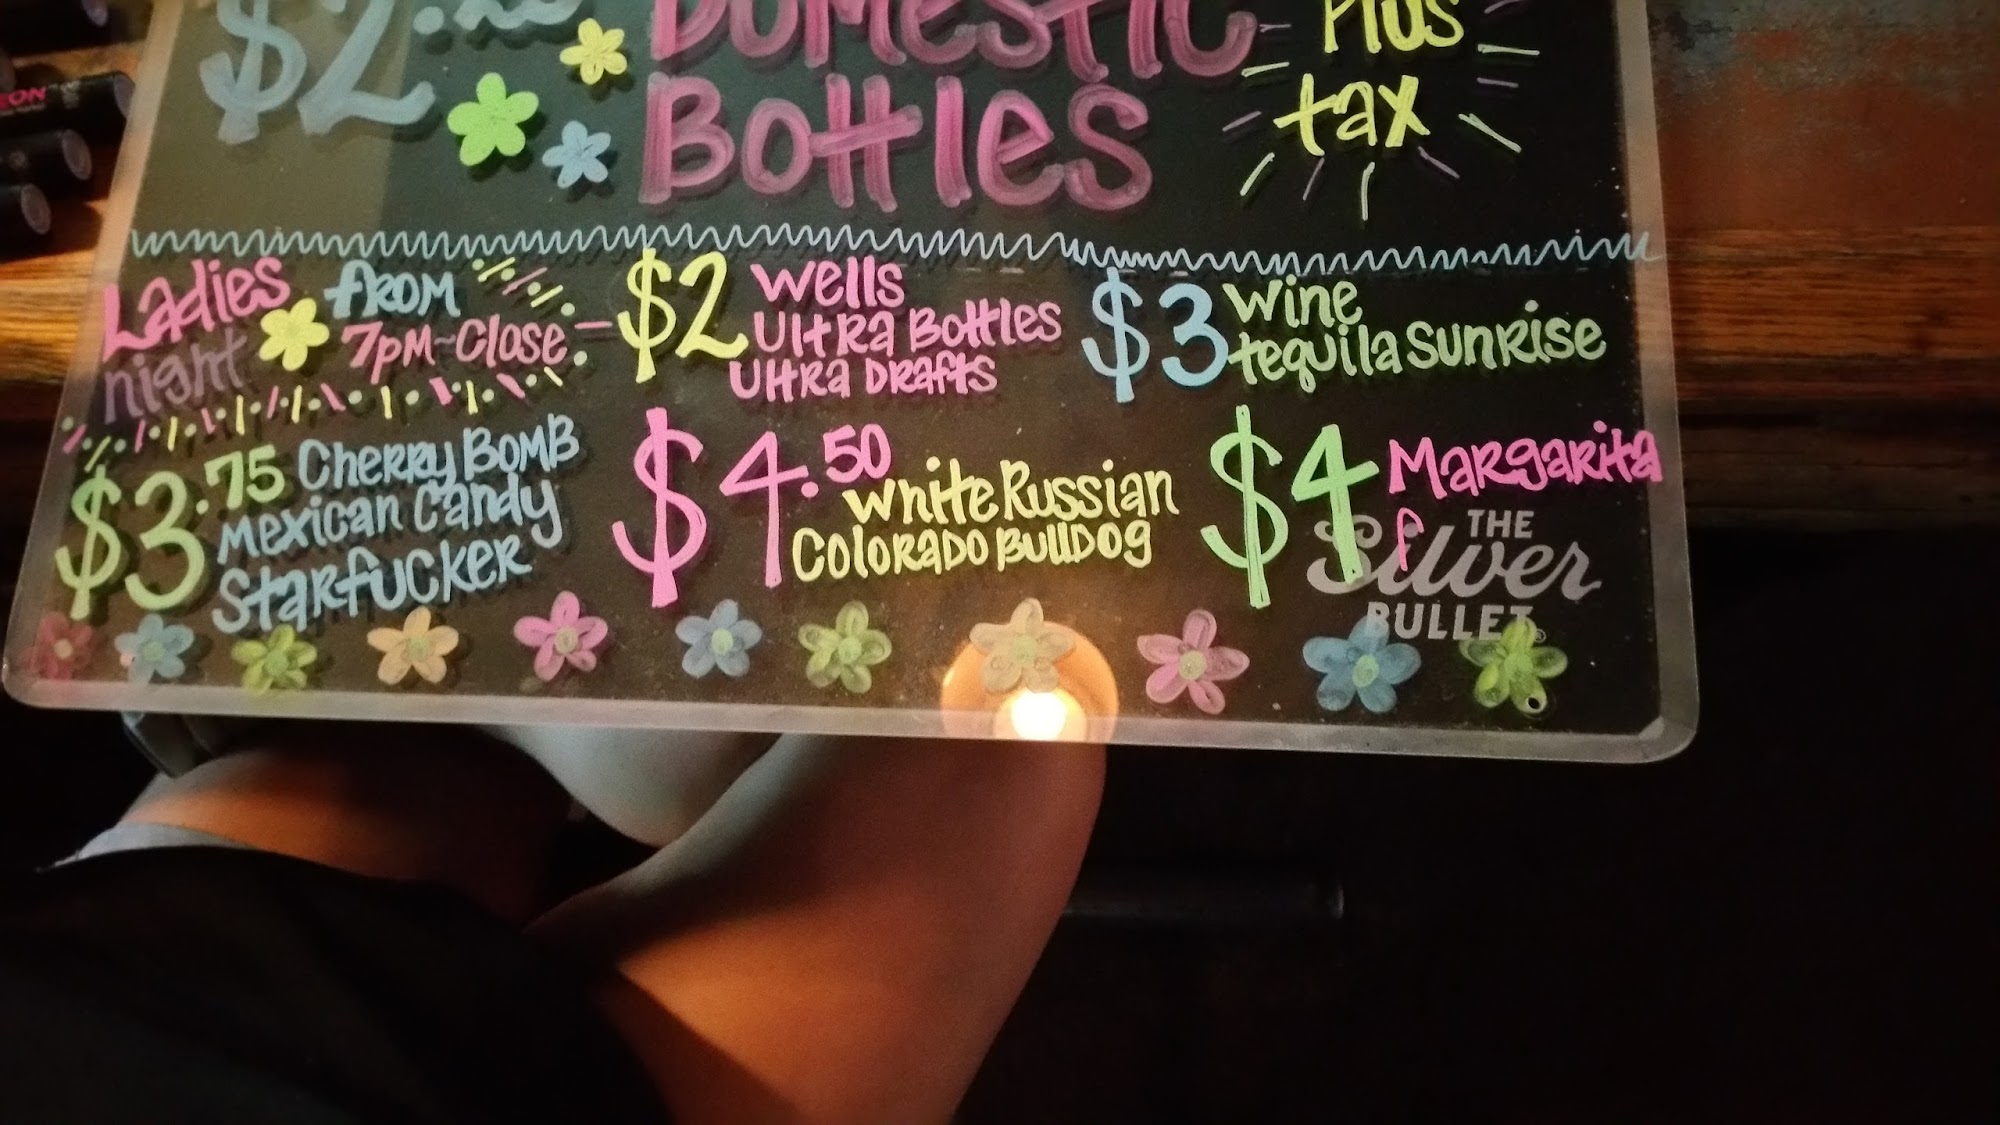 $2.25 DOMESTIC Plus
Bottles tax
Ladies night from 7pm~Close
$2 Wells
Ultra Bottles
Ultra Drafts
$3 Wine
tequila Sunrise
$3.75 Cherry Bomb
Mexican Candy
Starfucker
$4.50 White Russian
Colorado Bulldog
$4 Margarita
THE
Silver
BULLET